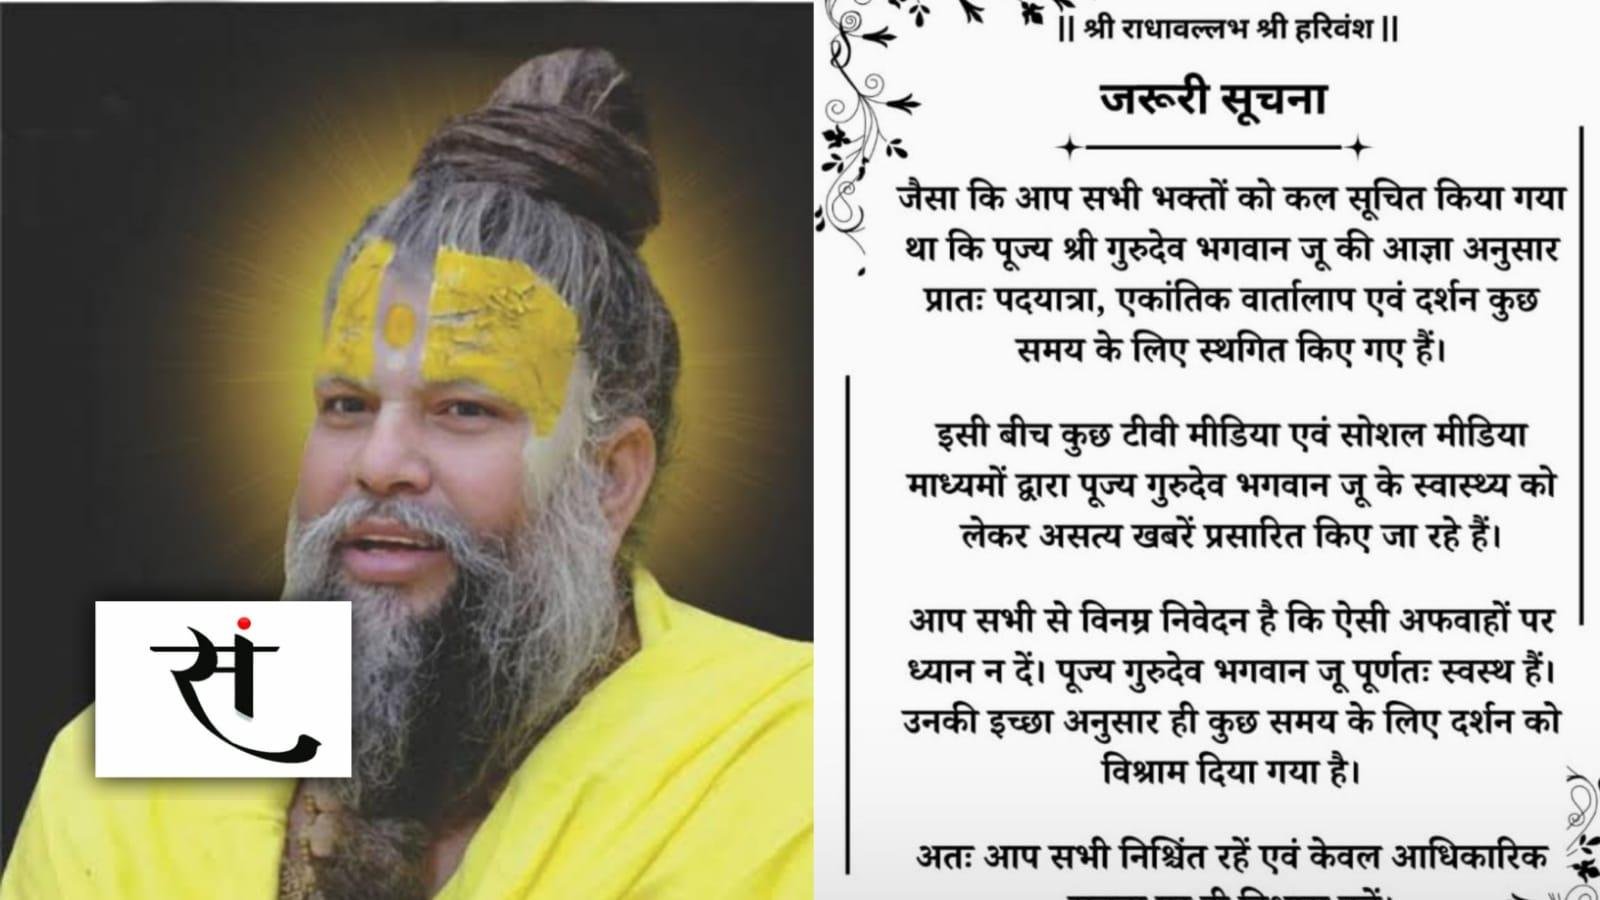 सं
|| श्री राधावल्लभ श्री हरिवंश ||
जरूरी सूचना
जैसा कि आप सभी भक्तों को कल सूचित किया गया
था कि पूज्य श्री गुरुदेव भगवान जू की आज्ञा अनुसार
प्रातः पदयात्रा, एकांतिक वार्तालाप एवं दर्शन कुछ
समय के लिए स्थगित किए गए हैं।
इसी बीच कुछ टीवी मीडिया एवं सोशल मीडिया
माध्यमों द्वारा पूज्य गुरुदेव भगवान जू के स्वास्थ्य को
लेकर असत्य खबरें प्रसारित किए जा रहे हैं।
आप सभी से विनम्र निवेदन है कि ऐसी अफवाहों पर
ध्यान न दें। पूज्य गुरुदेव भगवान जू पूर्णतः स्वस्थ हैं।
उनकी इच्छा अनुसार ही कुछ समय के लिए दर्शन को
विश्राम दिया गया है।
अतः आप सभी निश्चिंत रहें एवं केवल आधिकारिक